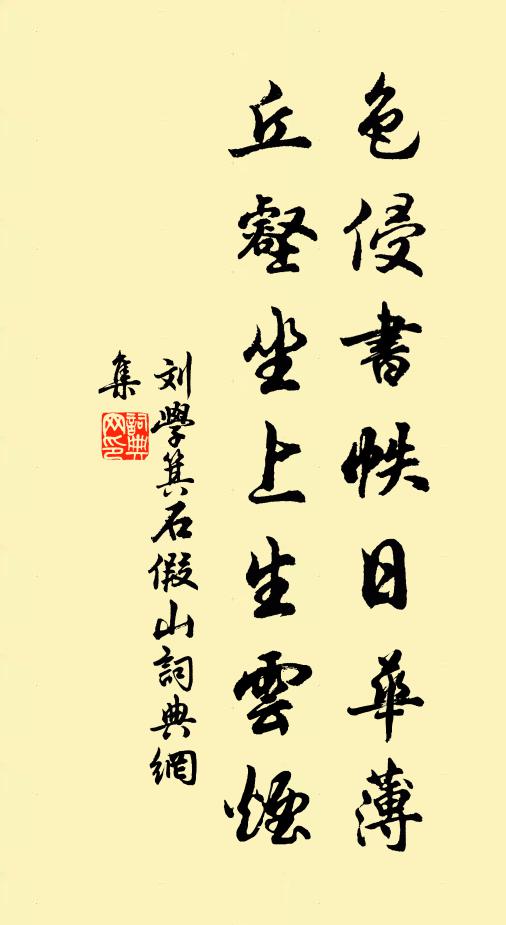 色侵書帙日華薄
丘壑坐上生雲煙
刘學箕石假山詞典網
集
詞典網印